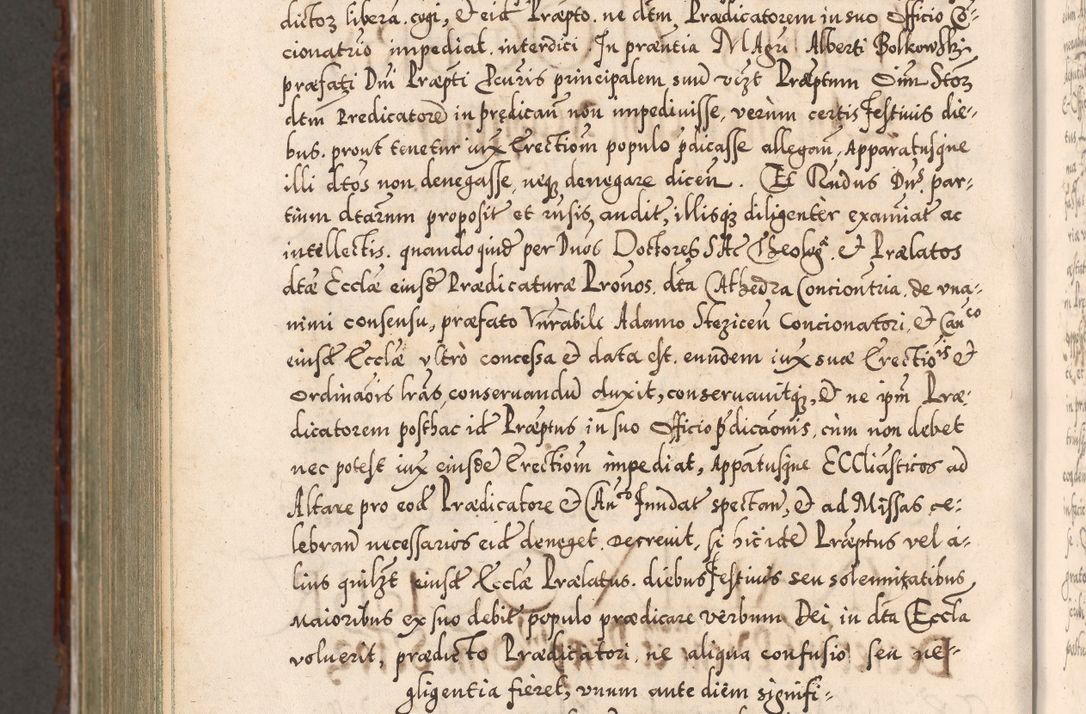 dictoꝝ libera. cogi, & eid. Præpto. ne dtm, Prædicatorem in suo Officio Co-
cionatrio impediat. interdici. In præntia MAgri Alberti Bolkowskj
præfati Dni Præpti Pcuris principalem suū vizt Præptum Oim Stoꝝ
dtm Predicatorē in predicaū non impediuisse, verùm certis Festiuis die-
bus. prout tenetur iux Erectiom populo pdicasse allegaū, Apparatusque
illi dtos non denegasse, neqꝫ denegare dicen. Et Rndus Dns. par-
tium dtarum proposit et rusis, audit, illisqꝫ diligentèr examiat ac
intellectis. quandoquid per Duos Doctores SAc Theologa. & Prælatos
dtæ Ecclæ eiusd Prædicaturæ Pronos. dta CAthedra Conciontria. de vna-
nimi consensu, præfato Vnrabile Adamo Stezicen Concionatori, & Canco
eiusd Ecclæ vltrò concessa & data est. eundem iux suæ Erectiois &
Ordinaōis lras, conseruandū duxit, conseruauitqꝫ, & ne ipm Præ-
dicatorem posthac id Præptus in suo Officio pdicaōnis, cùm non debet
nec potest iux eiusde Erectiom impediat, Appatusqne ECCliasticos ad
Altare pro eod Prædicatore & CAnco Fundat spectan, & ad Missas ce-
lebran necessarios eid deneget. Decreuit, si hic ide Præptus vel a-
lius quilzt eiusd Ecclæ Prælatus. diebus Festiuis seu solennitatibus
Maioribus ex suo debit populo prædicare verbum Dei in dta Eccla
voluerit, prædicto Prædicatori, ne aliqua confusio seu ne-
gligentia fieret, vnum ante diem signifi-